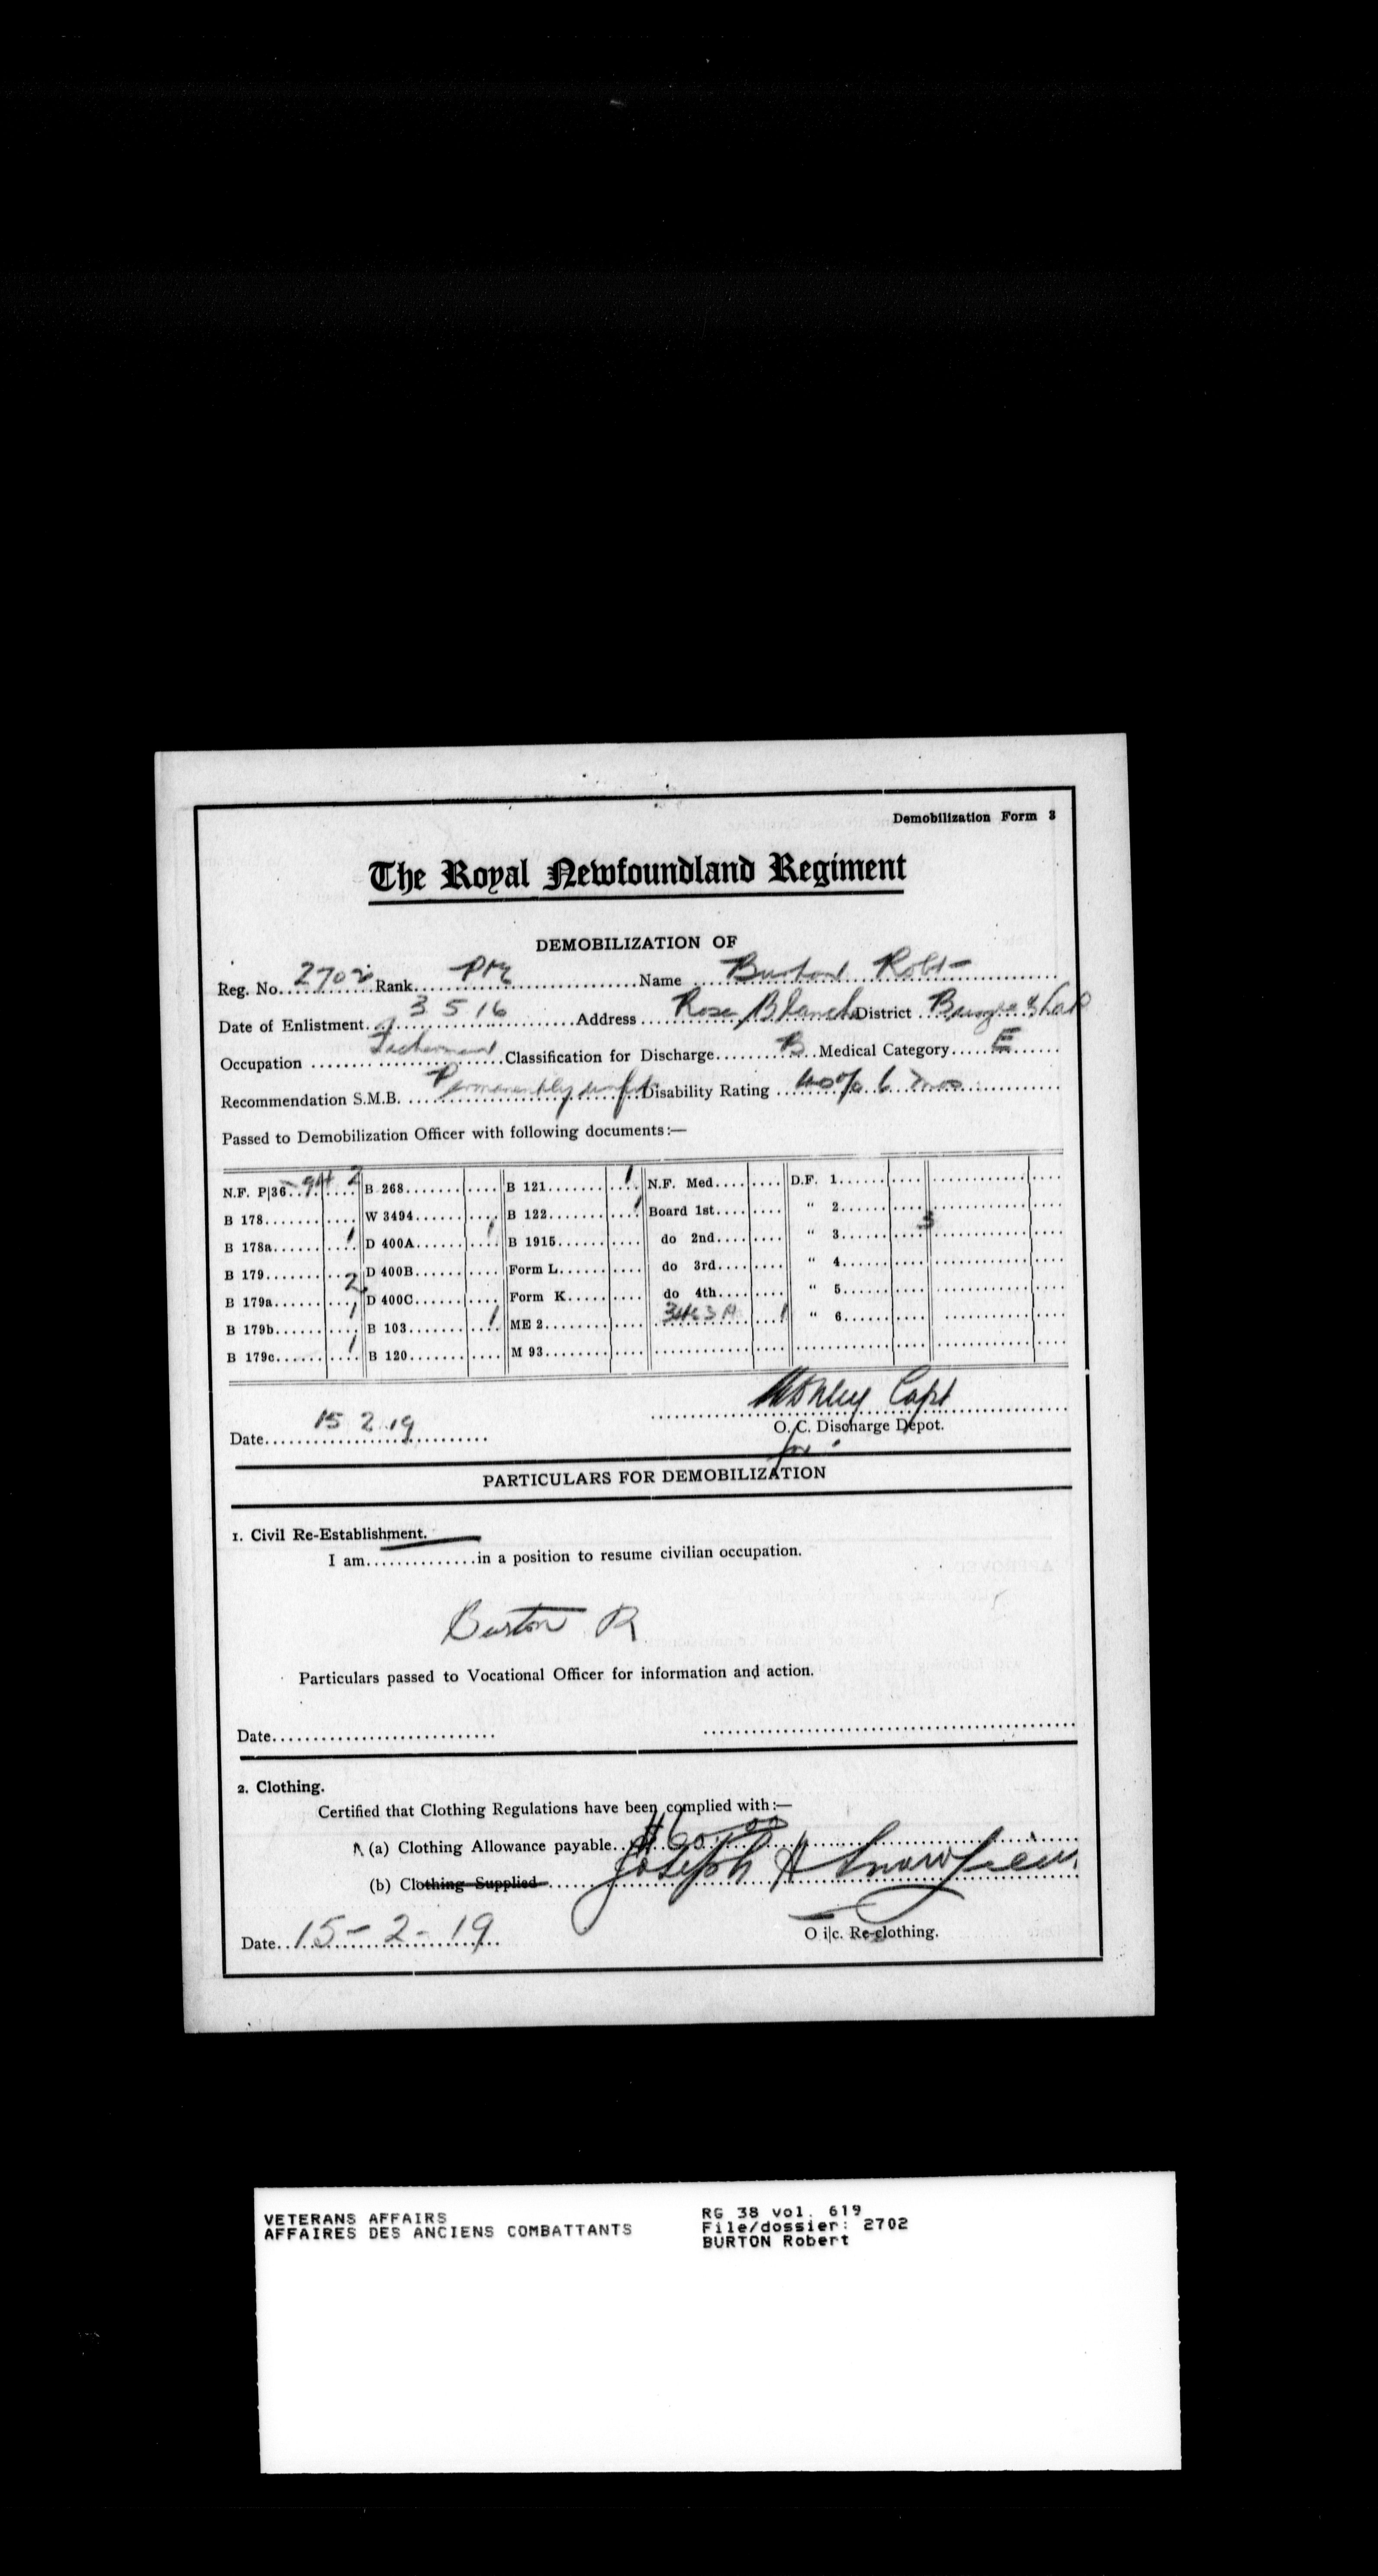 Demobilization Form 3
The Royal Newfoundland Regiment
DEMOBILIZATION OF
Reg. No. 2702 Rank Pte Name Burton Robt
Date of Enlistment 3 5 16 Address Rose Blanche District Burgeo & LaP
Occupation Fisherman Classification for Discharge B Medical Category E
Recommendation S.M.B. Permanently unfit Disability Rating 40% 6 mos
Passed to Demobilization Officer with following documents:—
N.F. P|36 2 B 268 B 121 1 N.F. Med. D.F. 1
B 178 W 3494 B 122 1 Board 1st " 2
B 178a 1 D 400A 1 B 1915 do 2nd " 3 3
B 179 2 D 400B Form L do 3rd " 4
B 179a 1 D 400C Form K do 4th " 5
B 179b B 103 1 ME 2 1 " 6
B 179c 1 B 120 M 93
Capt
Date 15 2 19 O. C. Discharge Depot.
for
PARTICULARS FOR DEMOBILIZATION
1. Civil Re-Establishment.
I am in a position to resume civilian occupation.
Burton R
Particulars passed to Vocational Officer for information and action.
Date
2. Clothing.
Certified that Clothing Regulations have been complied with:—
(a) Clothing Allowance payable $60.00
(b) Clothing Supplied Joseph H Snow
Date 15-2-19 O i|c. Re-clothing.
VETERANS AFFAIRS RG 38 vol. 619
AFFAIRES DES ANCIENS COMBATTANTS File/dossier: 2702
BURTON Robert